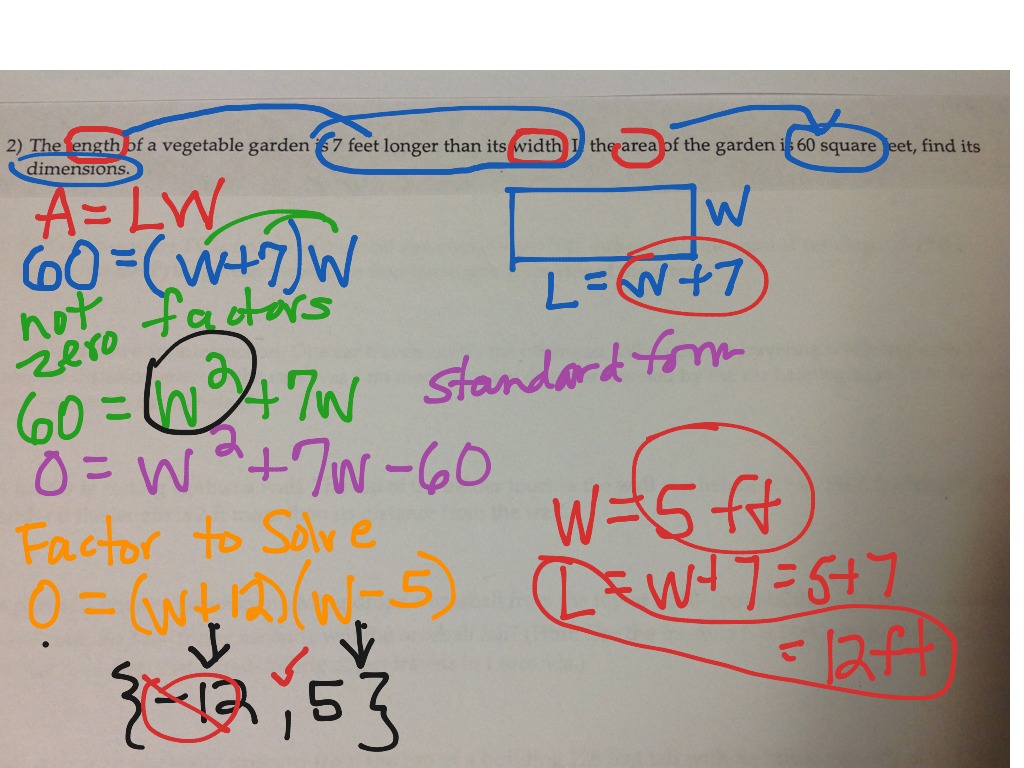 2) The length of a vegetable garden is 7 feet longer than its width. If the area of the garden is 60 square feet, find its
dimensions.
A = LW
W
60 = (W+7)W
L = W+7
not factors
zero
60 = W² + 7W
standard form
0 = W² + 7W - 60
W = 5 ft
Factor to Solve
L = W+7 = 5+7
0 = (W+12)(W-5)
= 12ft
{-12, 5}